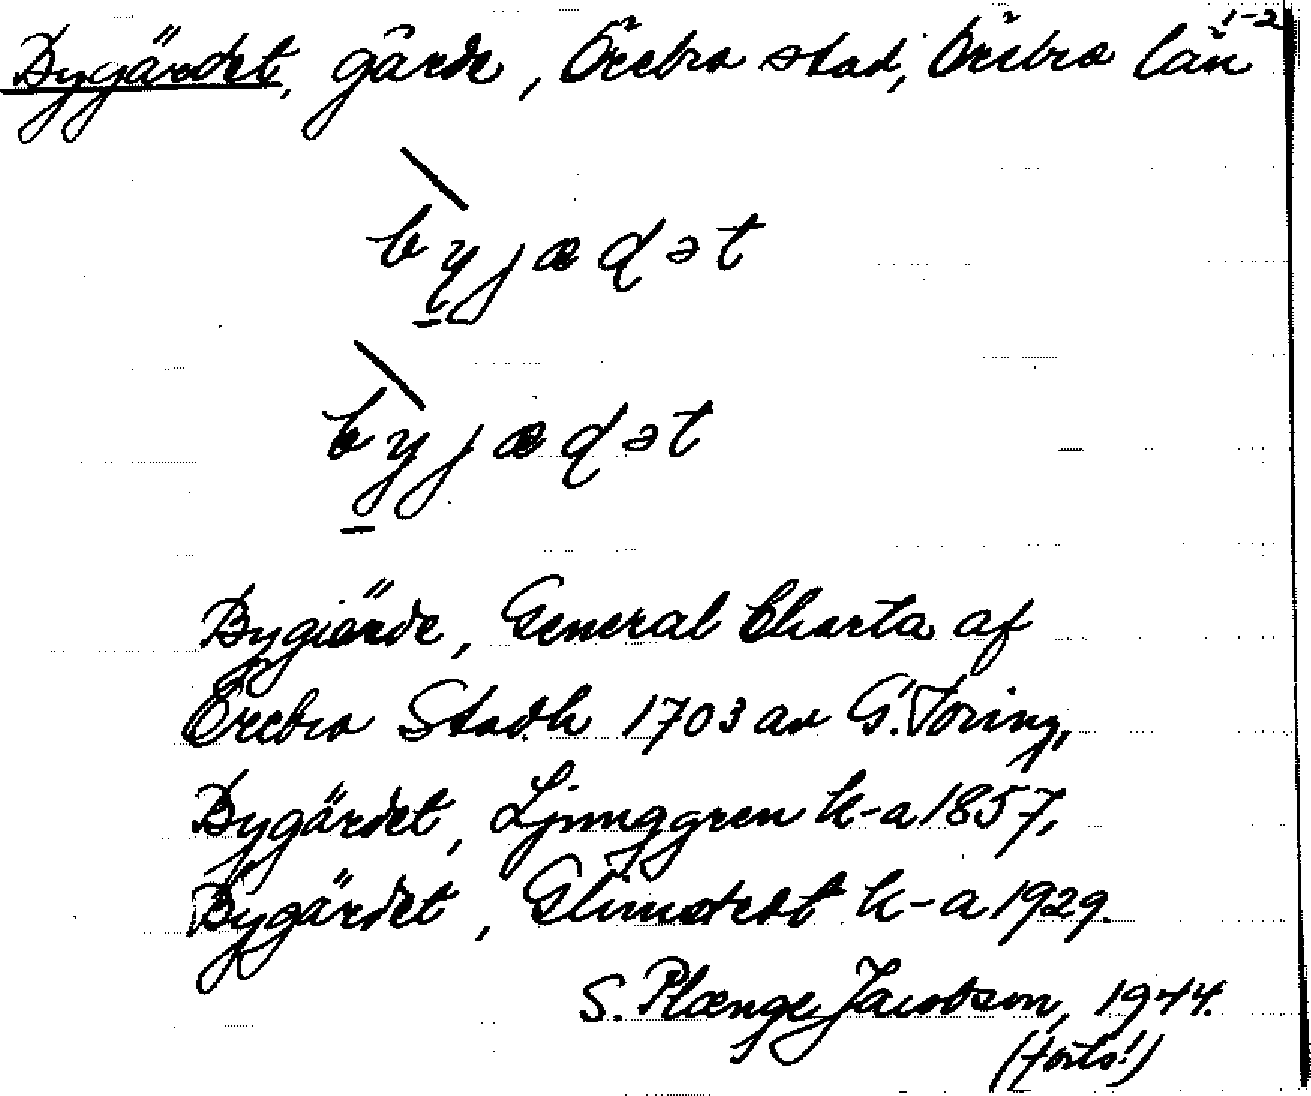 1-2
Bygärdet, gärde, Örebro stad, Örebro län
byjæɖət
byjæɖət
Bygiärde, General Charta af
Örebro Stadh 1703 av G. Toring,
Bygärdet, Ljunggren k-a 1857,
Bygärdet, Glimstedt k-a 1929.
S. Plænge Jacobson, 1944.
(forts!)